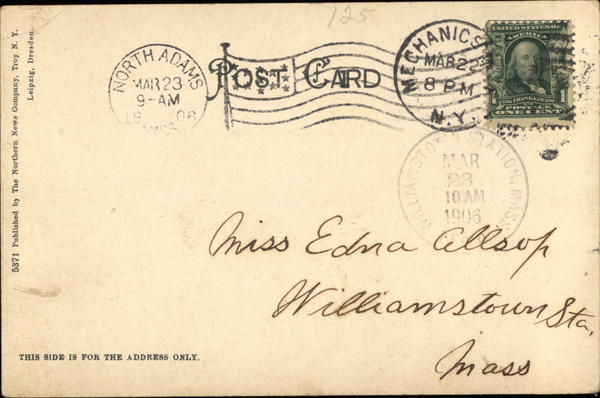 125
NORTH ADAMS
MAR 23
9-AM
19 06
MASS
POST CARD
MECHANICS
MAR 22
8 PM
N.Y.
UNITED STATES OF
AMERICA
1 FRANKLIN 1
POSTAGE
ONE CENT
WILLIAMSTO STATION, MASS
MAR
23
10 AM
1906
Miss Edna Allsop
Williamstown Sta.
Mass
THIS SIDE IS FOR THE ADDRESS ONLY.
5371 Published by The Northern News Company, Troy N. Y.
Leipzig, Dresden.